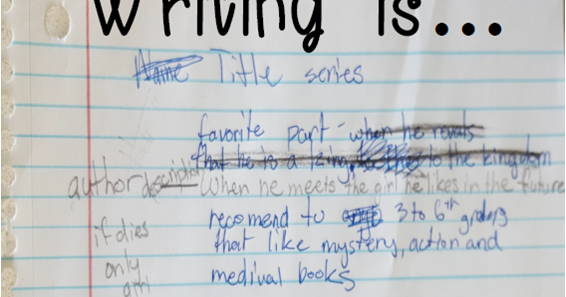 writing is...
Title series
favorite part - when he reveals
that he is a king to the kingdom
author description When he meets the girl he likes in the future
recomend to 3 to 6th graders
if dies that like mystery, action and
only medival books
girl